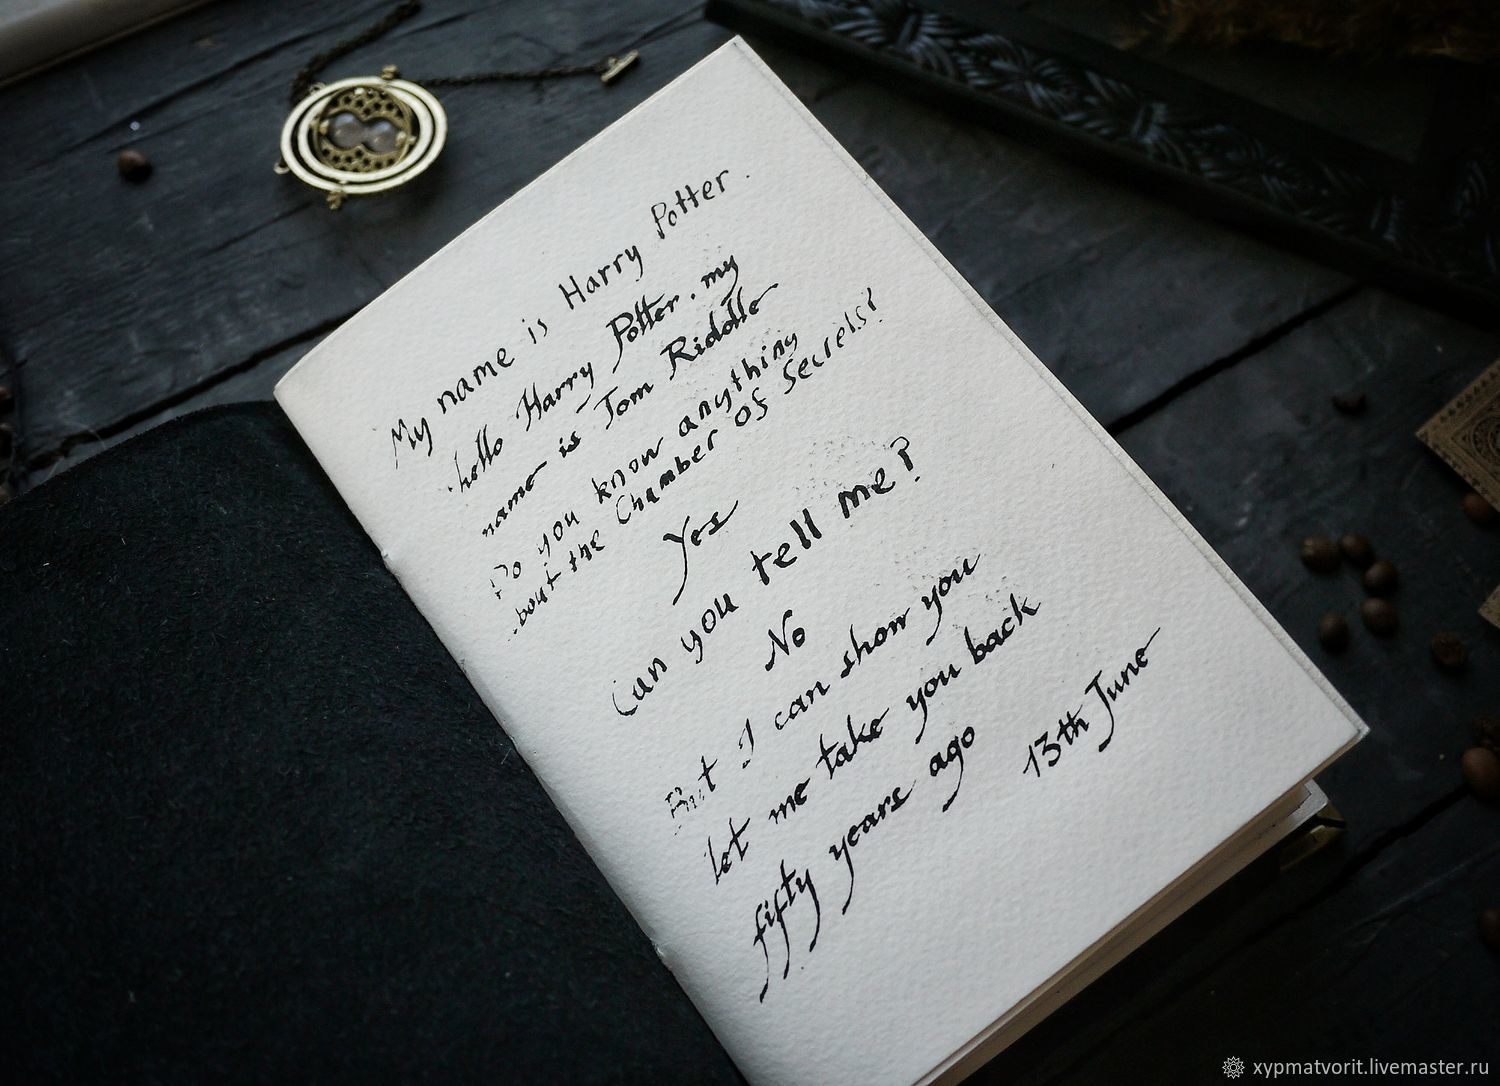 My name is Harry Potter.
hello Harry Potter. my
name is Tom Riddle
Do you know anything
bout the Chamber of Secrets?
Yes
Can you tell me?
No
But I can show you
let me take you back
fifty years ago
13th June
xypmatvorit.livemaster.ru